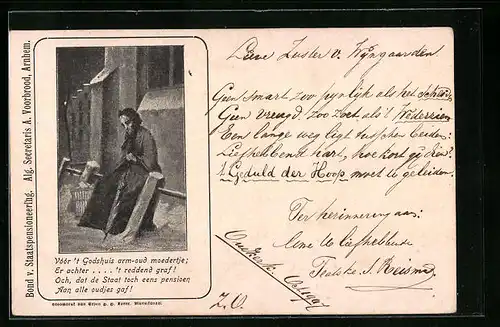 Bond v. Staatspensioneering. Alg. Secretaris A. Voorbrood, Arnhem.
Vóór 't Godshuis arm-oud moedertje;
Er achter . . . . 't reddend graf!
Och, dat de Staat toch eens pensioen
Aan alle oudjes gaf!
Lieve Zuster v. Wijngaarden
Geen smart zoo pijnlijk als het scheiden
Geen vreugd, zoo zoet als 't Wederzien
Een lange weg ligt tusschen beiden:
Liefhebbend hart, hoe kort gij dien?
't Geduld der Hoop moet u geleiden.
Ter herinnering aan:
Uwe liefhebbende
Z.O.